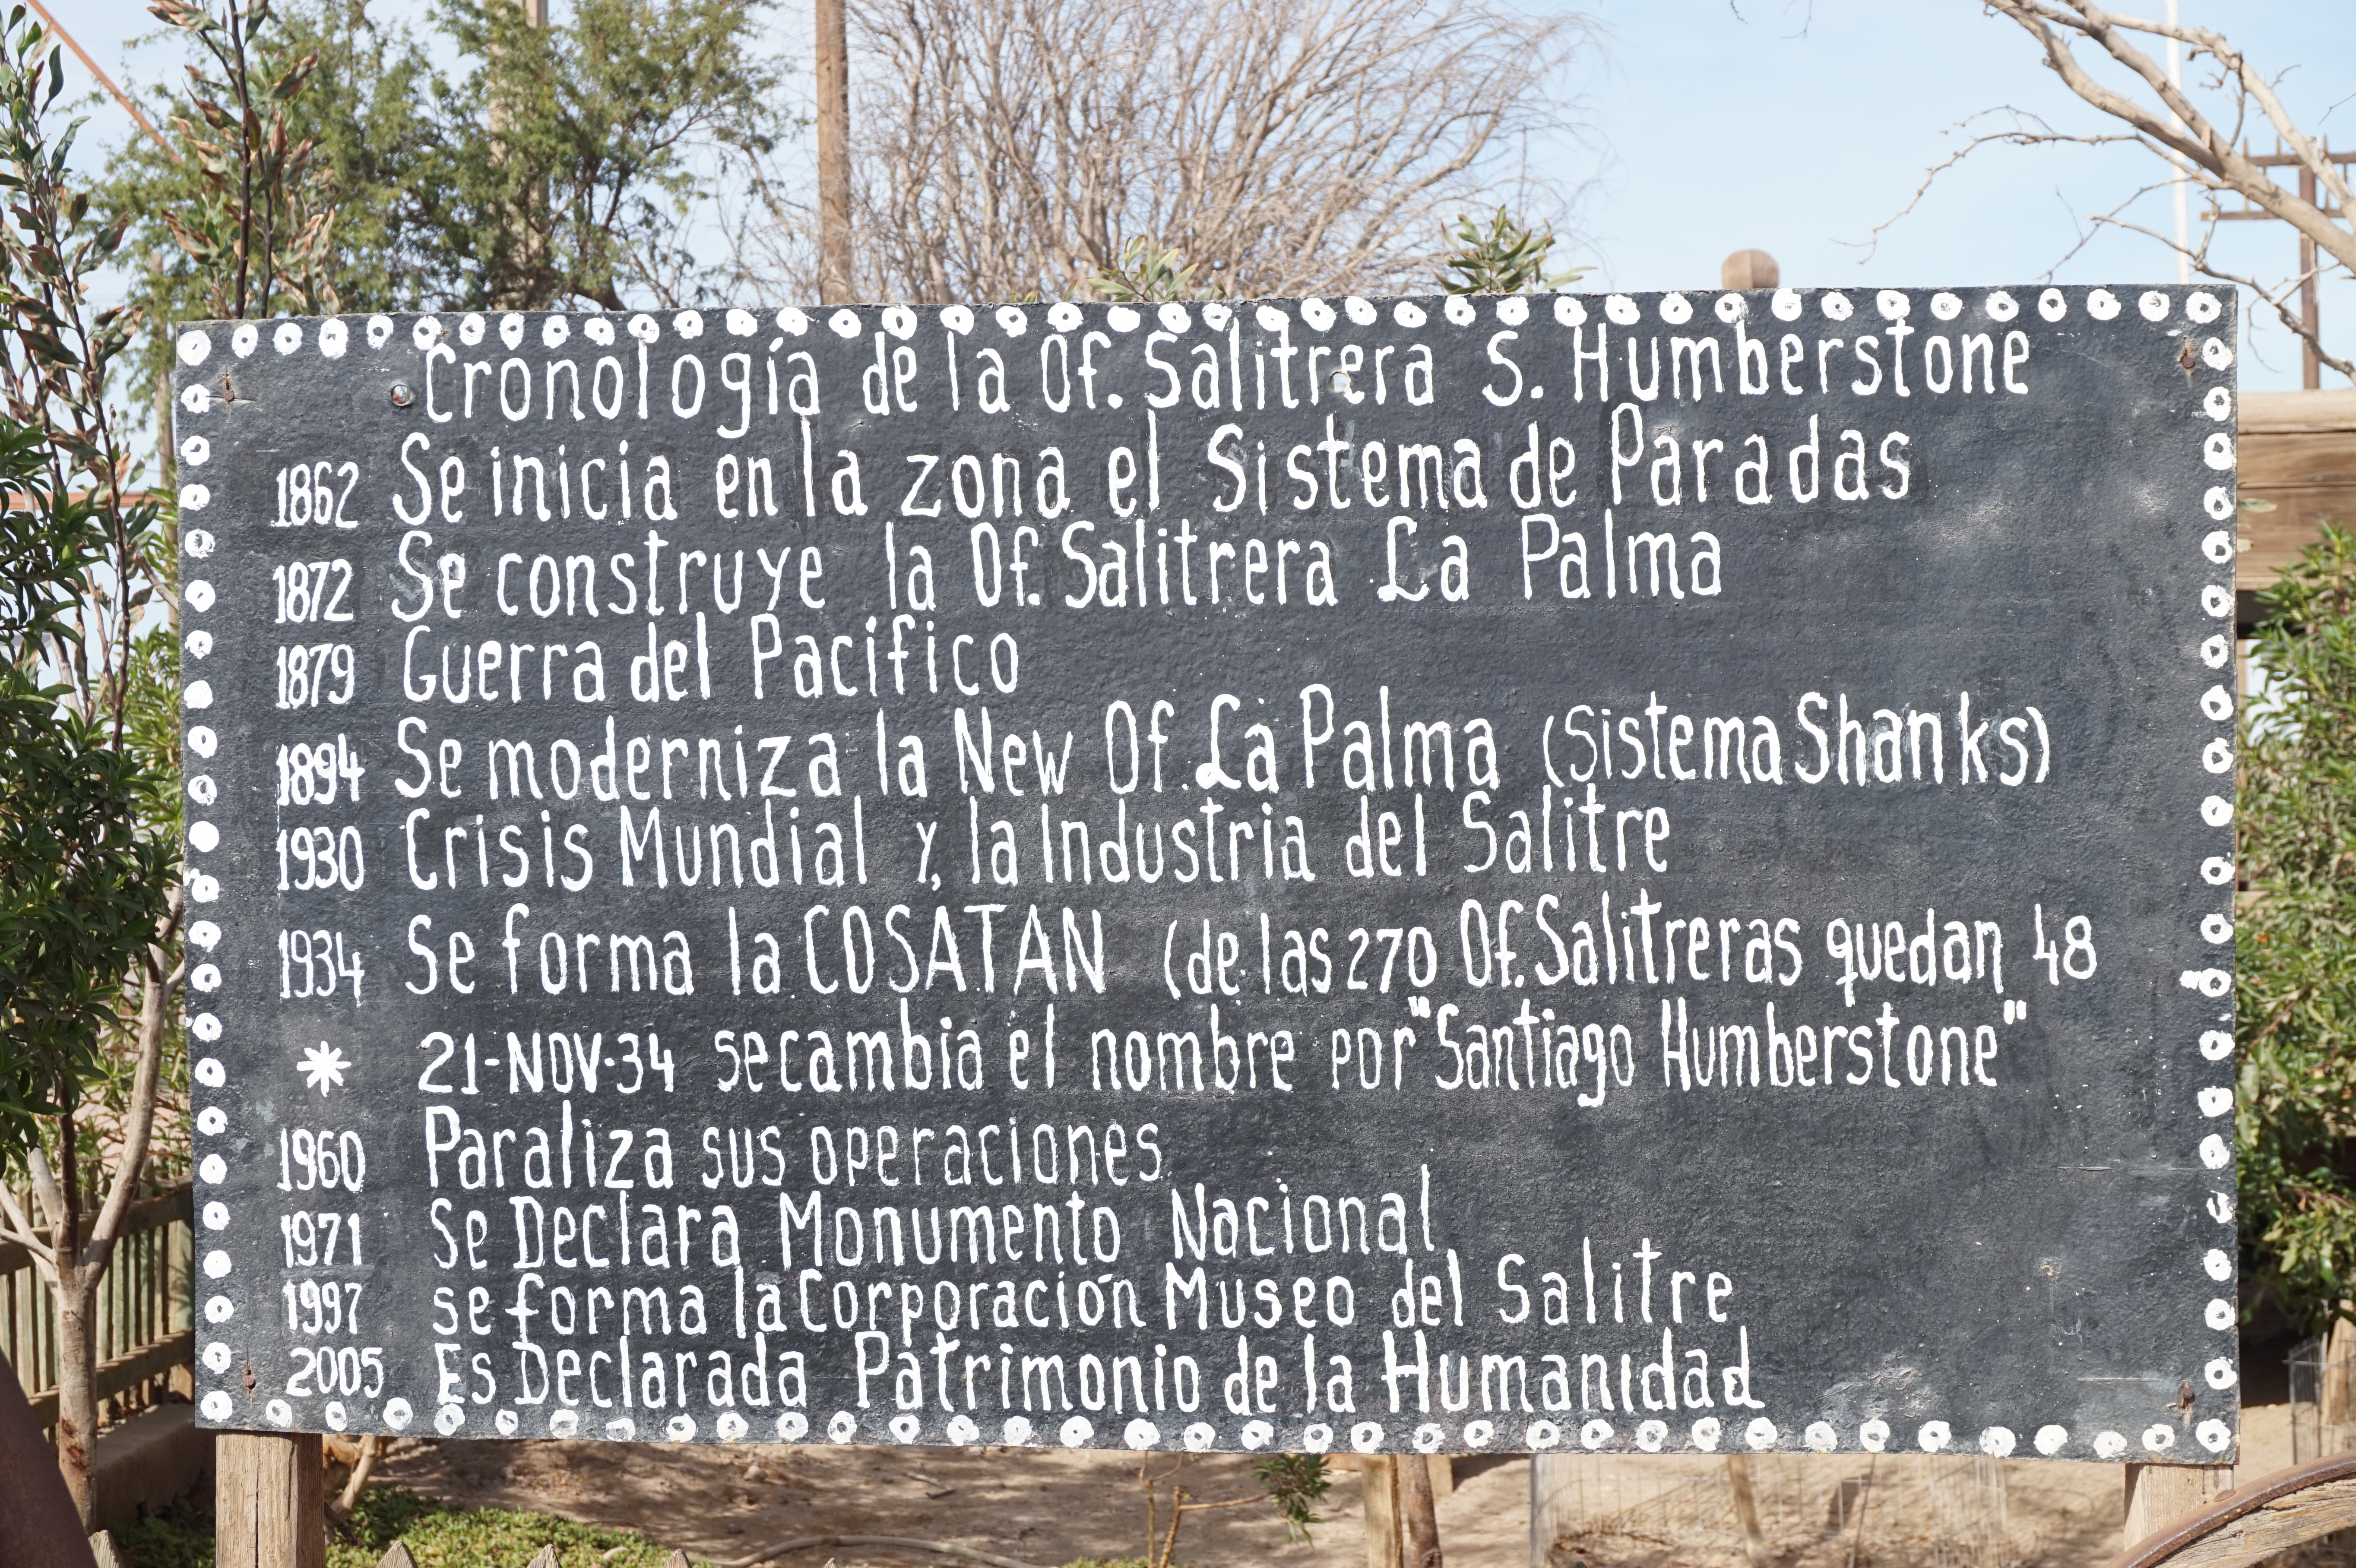 Cronología de la Of. Salitrera S. Humberstone
1862 Se inicia en la zona el Sistema de Paradas
1872 Se construye la Of. Salitrera La Palma
1879 Guerra del Pacífico
1894 Se moderniza la New Of. La Palma (Sistema Shanks)
1930 Crisis Mundial y, la Industria del Salitre
1934 Se forma la COSATAN (de las 270 Of. Salitreras quedan 48
* 21-NOV-34 se cambia el nombre por "Santiago Humberstone"
1960 Paraliza sus operaciones
1971 Se Declara Monumento Nacional
1997 se forma la Corporación Museo del Salitre
2005 Es Declarada Patrimonio de la Humanidad